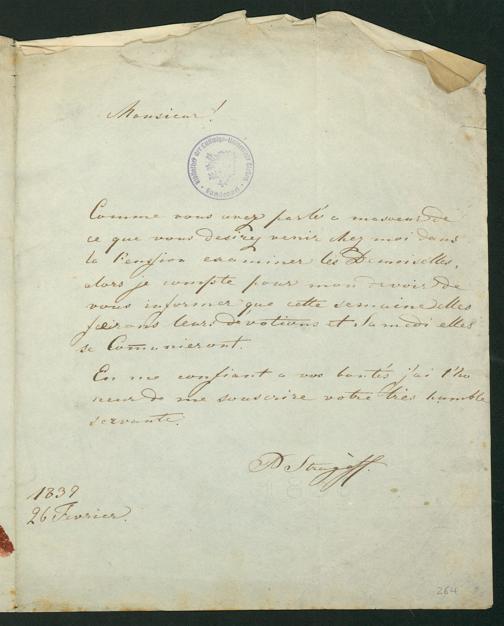 Monsieur!
Comme vous avez parlé a masoeur de
ce que vous desirez venir chez moi dans
la Pension examiner les Demoiselles,
alors je compte pour mon devoir de
vous informer que cette semaine elles
feirons leurs dévotions et Samedi elles
se Comunieront.
En me confiant a vos bontés j'ai l'ho
neur de me souscrire votre très humble
servante.
1839
26 Fevrier.
264